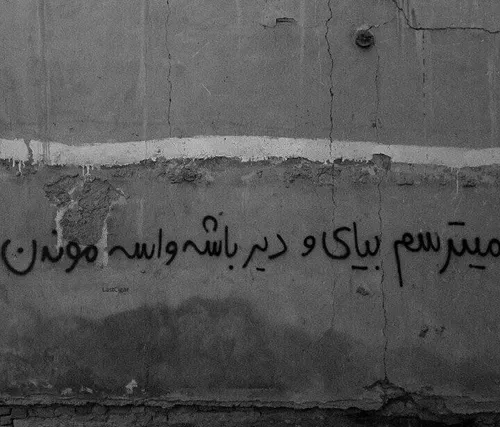 میترسم بیای و دیر باشه واسه موندن